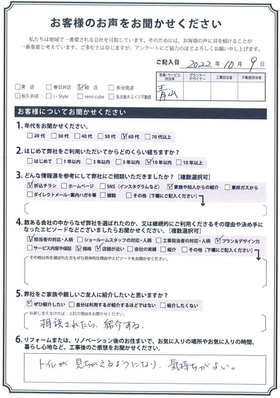 お客様のお声をお聞かせください
私たちは地域で一番愛される会社を目指しています。そのためには、お客様の声に耳を傾けることが
一番重要と考えています。ご多忙とは存じますが、アンケートにご協力のほどよろしくお願い申し上げます。
ご記入日 2022年10月9日
青山
お客様についてお聞かせください
1. 年代をお聞かせください。
20代 30代 40代 50代 60代 70代以上
2. はじめて弊社をご利用いただいてからどのくらい経ちますか?
はじめて 1年以内 3年以内 5年以内 10年以内 10年以上
3. どんな情報源を参考にして弊社にご相談いただきましたか?【複数選択可】
折込チラシ ホームページ SNS(インスタグラムなど) 家族や知人からの紹介 東邦ガスから
ダイレクトメール・案内ハガキ等 雑誌 その他(下欄にご記入ください)
4. 数ある会社の中からなぜ弊社を選ばれたのか、又は継続的にご利用くださるその理由や決め手に
なったエピソードなどございましたらお聞かせください。【複数選択可】
担当者の対応・人柄 ショールームスタッフの対応・人柄 工事担当者の対応・人柄 プラン&デザイン力
サービス内容や品質 価格 店舗が近い 会社の実績 紹介 その他(下欄にご記入ください)
5. 弊社をご家族や親しいご友人に紹介したいと思いますか?
ぜひ紹介したい
紹介したくない
相談されたら、紹介する。
6. リフォームまたは、リノベーション後のお住まいで、お気に入りの場所やお気に入りの時間、
暮らし心地など、工事後のご感想をお聞かせください。
トイレが見ちがえるようになり、気持ちがよい。